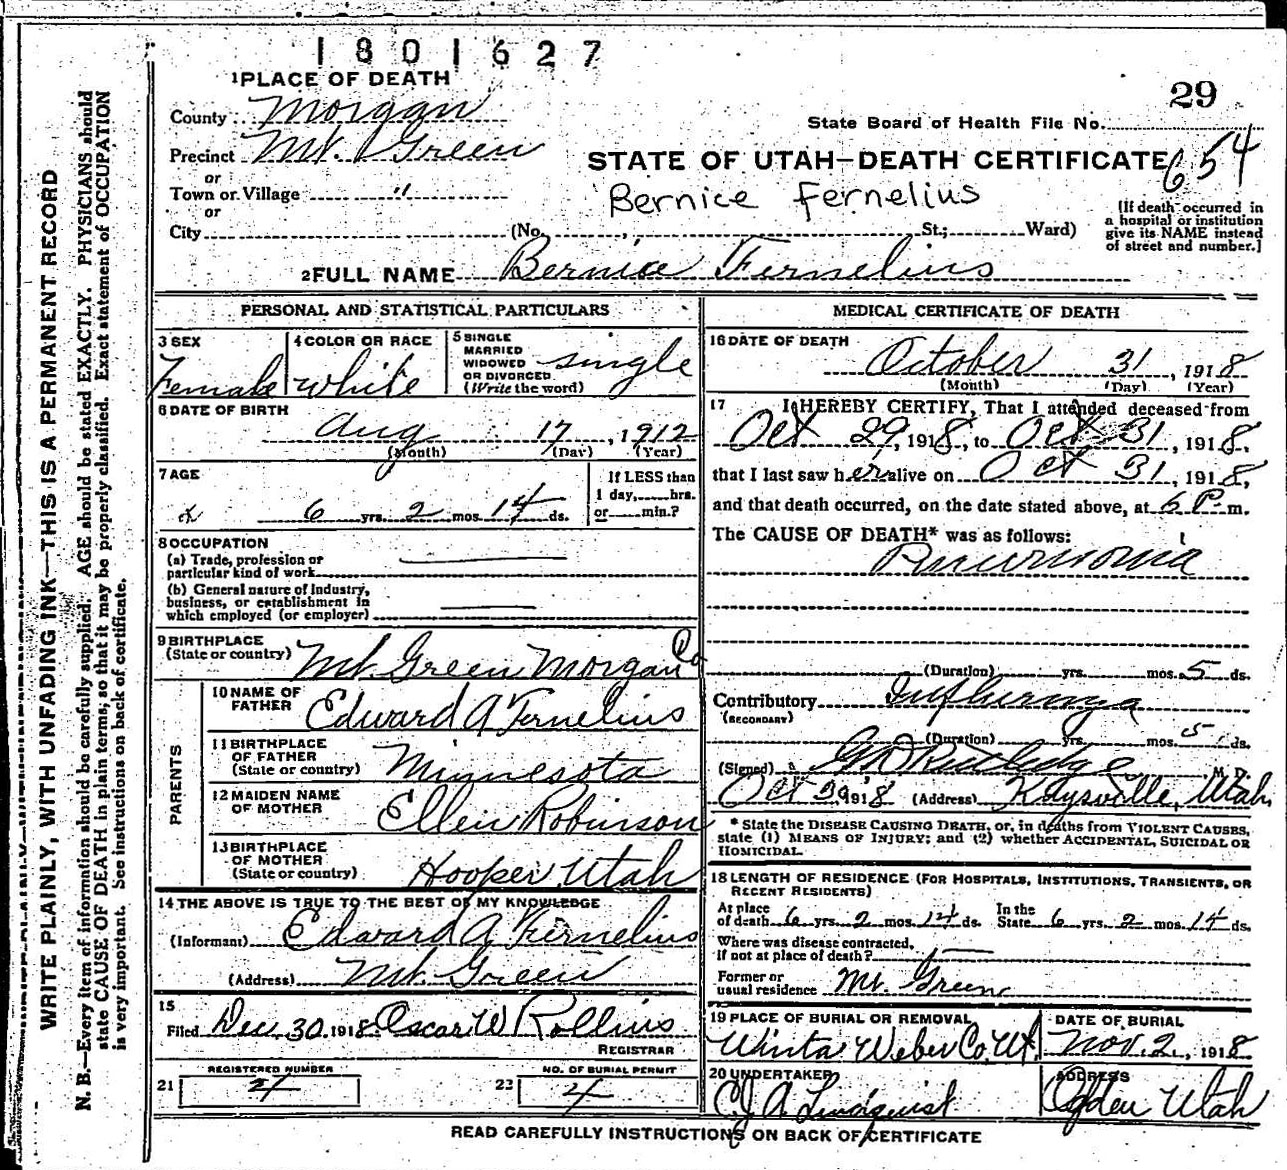 1801627
29
1 PLACE OF DEATH
County Morgan
State Board of Health File No.
654
Precinct Mt. Green
or
STATE OF UTAH—DEATH CERTIFICATE
Town or Village "
or
Bernice Fernelius
[If death occurred in a hospital or institution give its NAME instead of street and number.]
City (No. St.; Ward)
2 FULL NAME Bernice Fernelius
PERSONAL AND STATISTICAL PARTICULARS
3 SEX
Female
4 COLOR OR RACE
white
5 SINGLE
MARRIED
WIDOWED
OR DIVORCED
(Write the word)
single
6 DATE OF BIRTH
Aug 17, 1912
(Month) (Day) (Year)
7 AGE
6 yrs. 2 mos. 14 ds.
If LESS than
1 day, hrs.
or min.?
8 OCCUPATION
(a) Trade, profession or
particular kind of work
(b) General nature of industry,
business, or establishment in
which employed (or employer)
9 BIRTHPLACE
(State or country) Mt. Green Morgan Co
PARENTS
10 NAME OF
FATHER Edward A Fernelius
11 BIRTHPLACE
OF FATHER
(State or country) Minnesota
12 MAIDEN NAME
OF MOTHER Ellen Robinson
13 BIRTHPLACE
OF MOTHER
(State or country) Hooper Utah
14 THE ABOVE IS TRUE TO THE BEST OF MY KNOWLEDGE
(Informant) Edward A Fernelius
(Address) Mt. Green
15
Filed Dec 30 1918 Oscar W Rollins
REGISTRAR
REGISTERED NUMBER
21 4
NO. OF BURIAL PERMIT
22 4
MEDICAL CERTIFICATE OF DEATH
16 DATE OF DEATH
October 31, 1918
(Month) (Day) (Year)
17 I HEREBY CERTIFY, That I attended deceased from
Oct 29, 1918, to Oct 31, 1918,
that I last saw her alive on Oct 31, 1918,
and that death occurred, on the date stated above, at 6 P. m.
The CAUSE OF DEATH* was as follows:
Pneumonia
(Duration) yrs. mos. 5 ds.
Contributory Influenza
(SECONDARY)
(Duration) yrs. mos. 5 ds.
(Signed) G D Rutledge M. D.
Oct 1918 (Address) Kaysville, Utah
* State the DISEASE CAUSING DEATH, or, in deaths from VIOLENT CAUSES,
state (1) MEANS OF INJURY; and (2) whether ACCIDENTAL, SUICIDAL OR
HOMICIDAL.
18 LENGTH OF RESIDENCE (FOR HOSPITALS, INSTITUTIONS, TRANSIENTS, OR
RECENT RESIDENTS)
At place
of death 6 yrs. 2 mos. 14 ds. In the State 6 yrs. 2 mos. 14 ds.
Where was disease contracted,
if not at place of death?
Former or
usual residence Mt. Green
19 PLACE OF BURIAL OR REMOVAL
Uinta Weber Co. Ut.
DATE OF BURIAL
Nov. 2, 1918
20 UNDERTAKER
C J A Lindquist
ADDRESS
Ogden Utah
READ CAREFULLY INSTRUCTIONS ON BACK OF CERTIFICATE
WRITE PLAINLY, WITH UNFADING INK—THIS IS A PERMANENT RECORD
N. B.—Every item of information should be carefully supplied. AGE should be stated EXACTLY. PHYSICIANS should
state CAUSE OF DEATH in plain terms, so that it may be properly classified. Exact statement of OCCUPATION
is very important. See instructions on back of certificate.